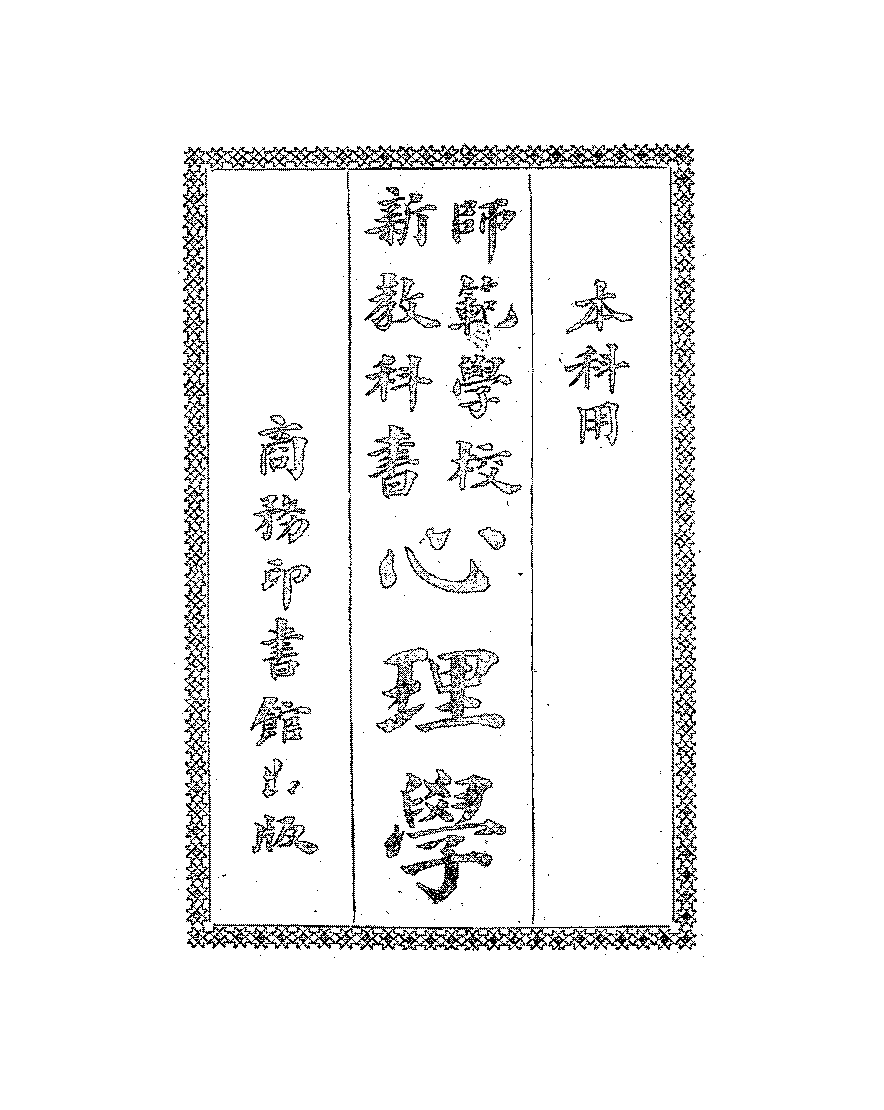 本科用
師範學校
新教科書
心理學
商務印書館出版